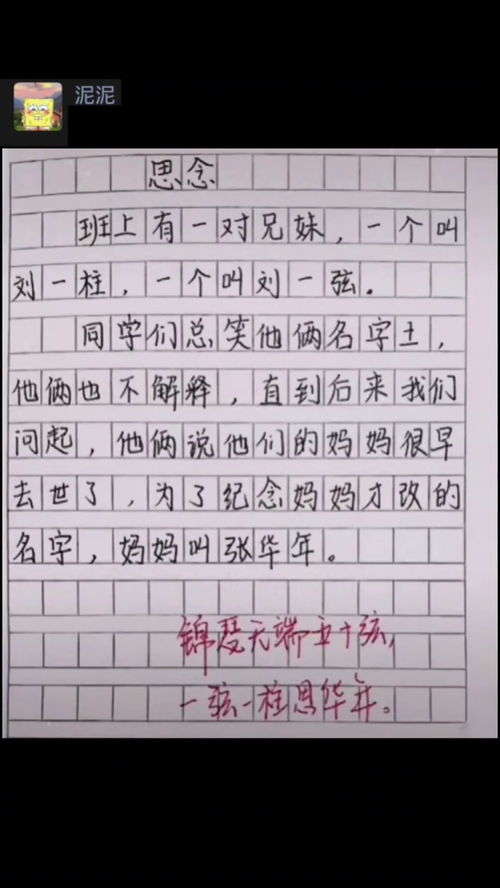 泥泥
思念
班上有一对兄妹，一个叫
刘一柱，一个叫刘一弦。
同学们总笑他俩名字土，
他俩也不解释，直到后来我们
问起，他俩说他们的妈妈很早
去世了，为了纪念妈妈才改的
名字，妈妈叫张华年。
锦瑟无端五十弦，
一弦一柱思华年。